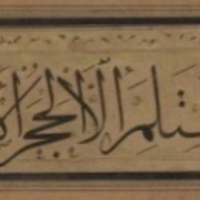 ستلم الا الحجر